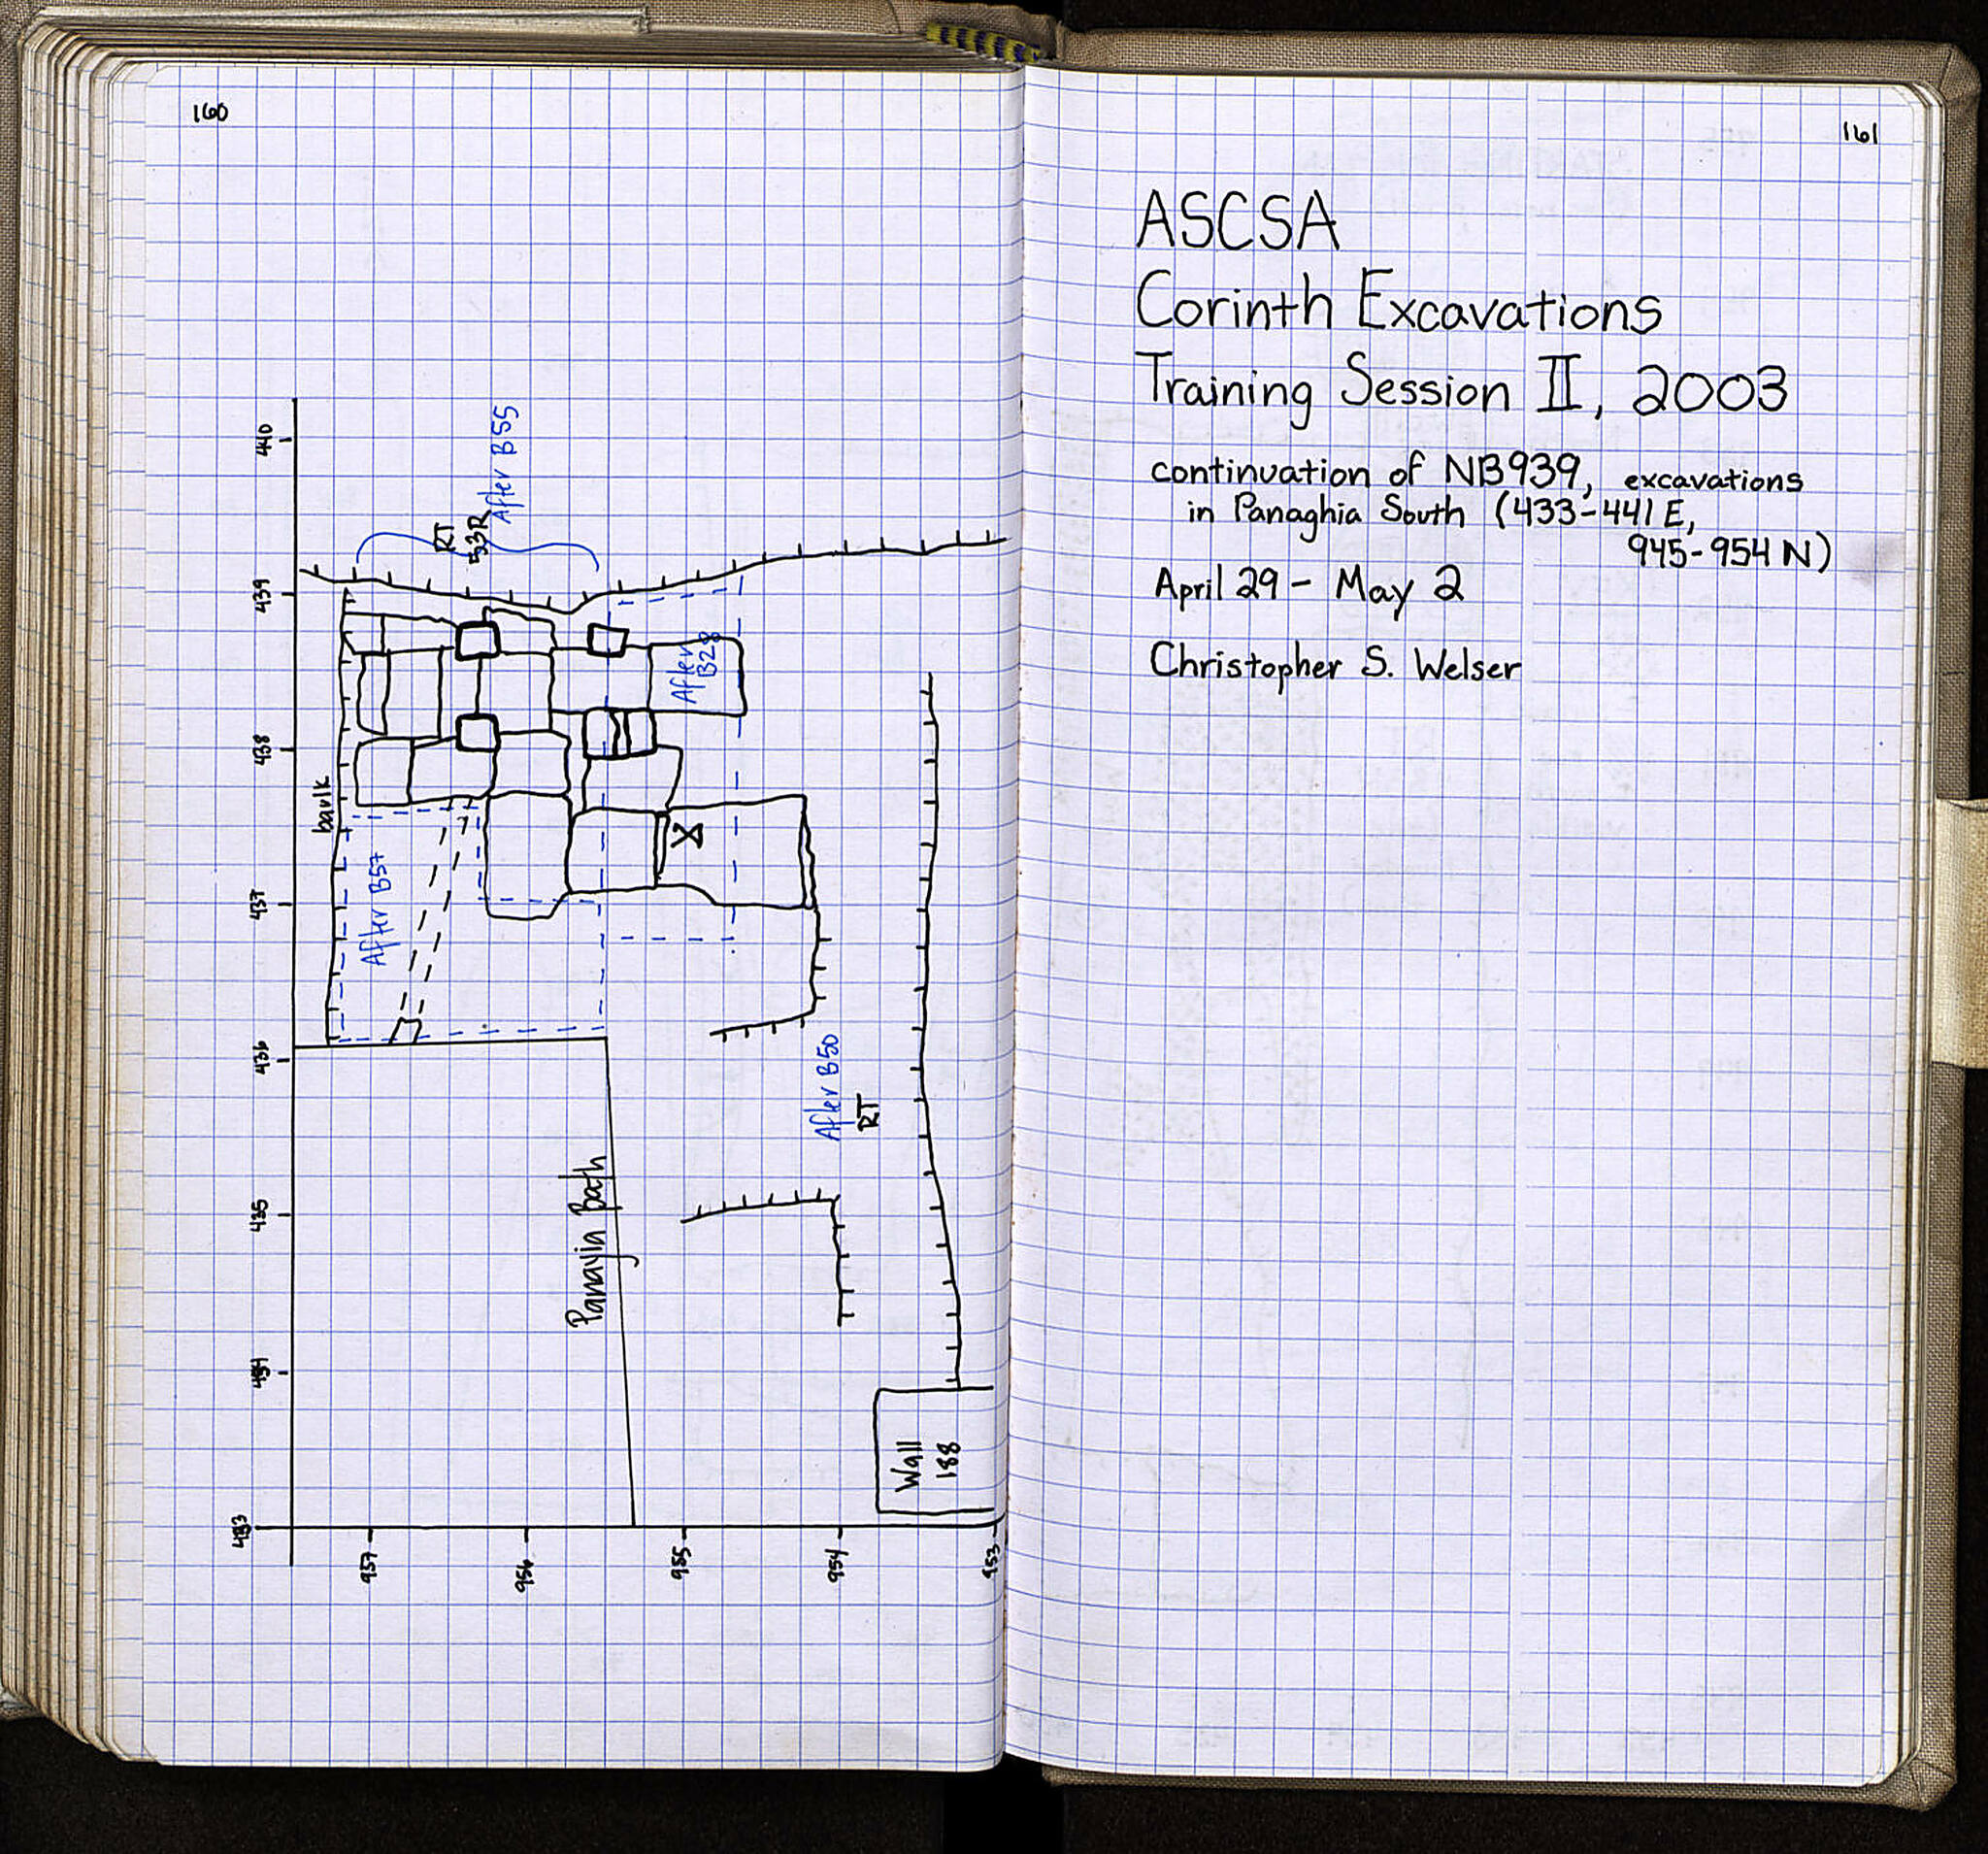 160
440
439
438
437
436
435
434
433
957
956
955
954
953
After B55
RT
53R
After
B28
baulk
After B57
After B50
RT
Panayia Bath
Wall
188
161
ASCSA
Corinth Excavations
Training Session II, 2003
continuation of NB939, excavations
in Panaghia South (433-441E,
945-954 N)
April 29 - May 2
Christopher S. Welser